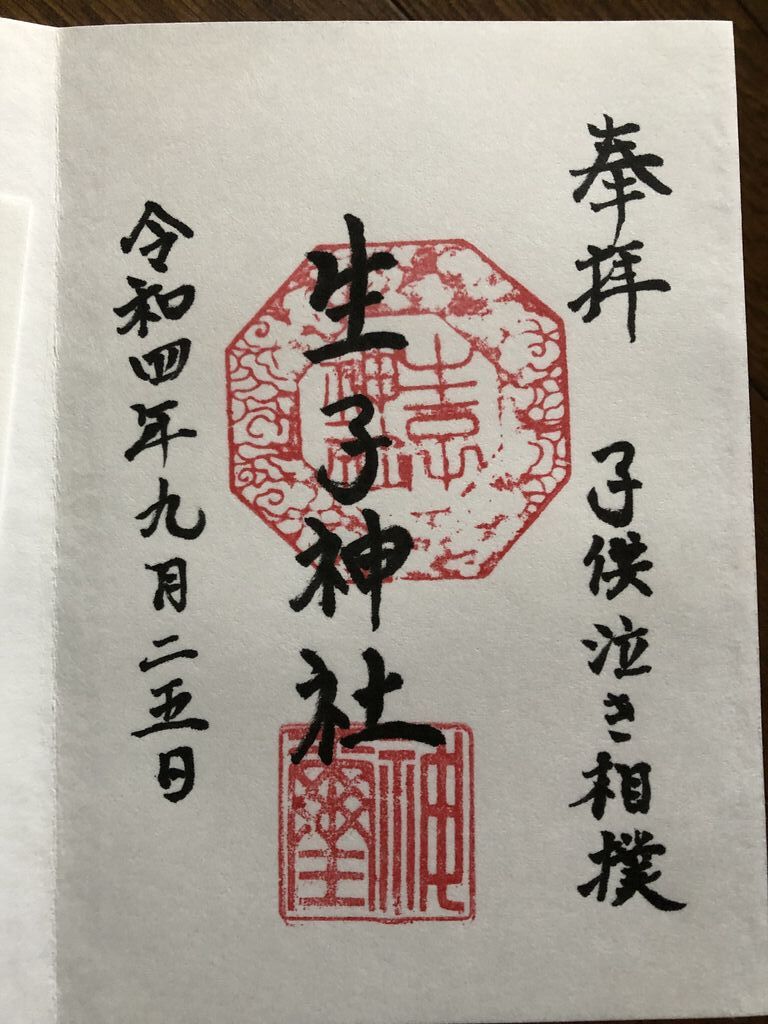 奉拝
子供泣き相撲
生子神社
令和四年九月二五日
神璽